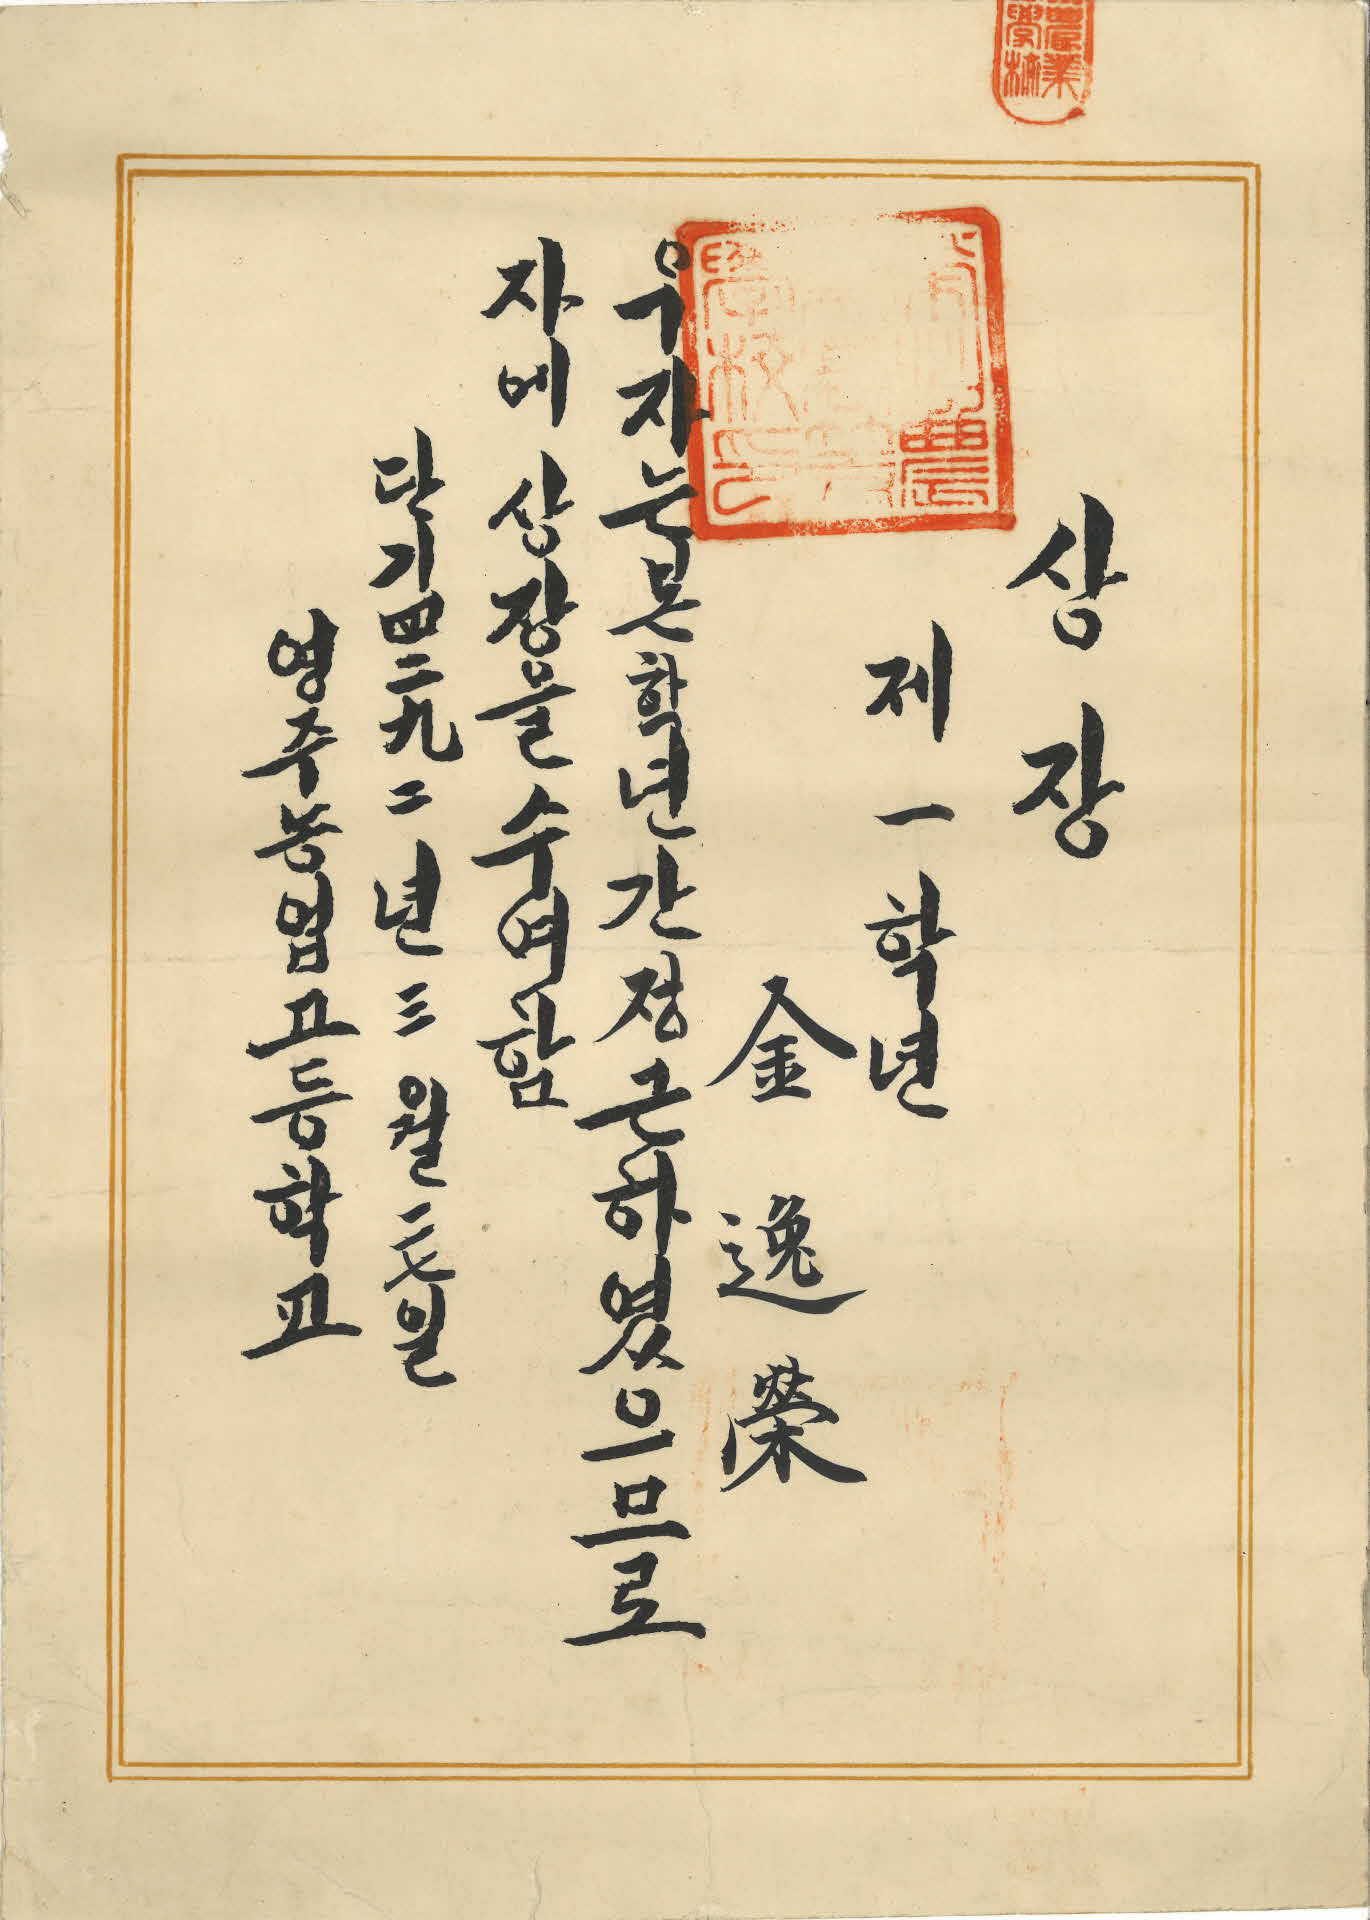 상장
제一학년
金逸榮
우자는본학년간정근하였으므로
자에상장을수여함
단기四二九二년三월二七일
영주농업고등학교
農業
學校